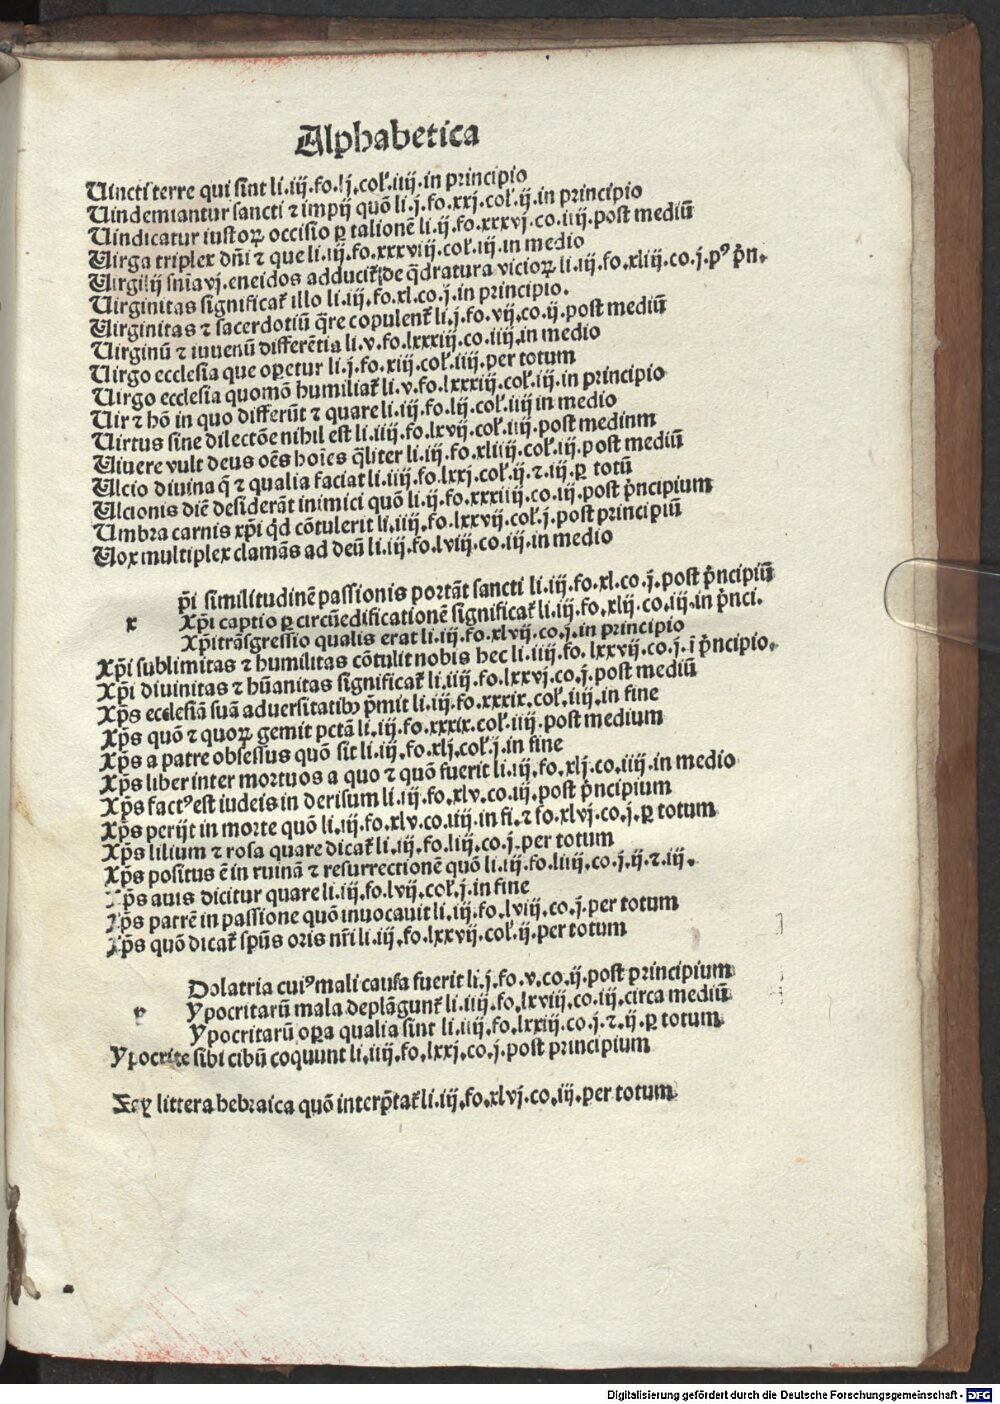 Alphabetica
Uincti terre qui sint li.iij.fo.lj.col̕.iiij.in principio
Uindemiantur sancti ⁊ impij quō li.j.fo.xxj.col̕.ij.in principio
Uindicatur iustoꝝ occisio ꝑ talionē li.ij.fo.xxxvj.co.iiij.post mediū
Uirga triplex dn̄i ⁊ que li.iij.fo.xxxviij.col̕.iij.in medio
Uirgilij sn̄ia vj.eneidos adducit̕ de q̄dratura vicioꝝ li.iij.fo.xliij.co.j.pꝰ pͥn.
Uirginitas significat̕ illo li.iij.fo.xl.co.j.in principio.
Uirginitas ⁊ sacerdotiū q̄re copulent̕ li.j.fo.vij.co.ij.post mediū
Uirginū ⁊ iuuenū differētia li.v.fo.lxxxiij.co.iiij.in medio
Uirgo ecclesia que oꝑetur li.j.fo.xiij.col̕.iiij.per totum
Uirgo ecclesia quomō humiliat̕ li.v.fo.lxxxiij.col̕.iij.in principio
Uir ⁊ hō in quo differūt ⁊ quare li.iij.fo.lij.col̕.iiij in medio
Uirtus sine dilectōe nihil est li.iiij.fo.lxvij.col̕.iiij.post medinm
Uiuere vult deus oēs hoīes q̄liter li.iij.fo.xliiij.col̕.iij.post mediū
Ulcio diuina q̄ ⁊ qualia faciat li.iiij.fo.lxxj.col̕.ij.⁊.iij.ꝑ totū
Ulcionis diē desiderāt inimici quō li.ij.fo.xxxiiij.co.iij.post pͥncipium
Umbra carnis xp̄i qͥd cōtulerit li.iiij.fo.lxxvij.col̕.j.post principiū
Uox multiplex clamās ad deū li.iij.fo.lviij.co.iij.in medio
p̄i similitudinē passionis portāt sancti li.iij.fo.xl.co.j.post pͥncipiū
x Xp̄i captio ꝑ circūedificationē significat̕ li.iij.fo.xlij.co.iij.in pͥnci.
Xp̄i trāsgressio qualis erat li.iij.fo.xlvij.co.j.in principio
Xp̄i sublimitas ⁊ humilitas cōtulit nobis hec li.iiij.fo.lxxvij.co.j.ī pͥncipio.
Xp̄i diuinitas ⁊ hūanitas significat̕ li.iiij.fo.lxxvj.co.j.post mediū
Xp̄s ecclesiā suā aduersitatibꝫ p̄mit li.iij.fo.xxxix.col̕.iiij.in fine
Xp̄s quō ⁊ quoꝝ gemit pctā li.iij.fo.xxxix.col̕.iiij.post medium
Xp̄s a patre obsessus quō sit li.iij.fo.xlj.col̕.j.in fine
Xp̄s liber inter mortuos a quo ⁊ quō fuerit li.iij.fo.xlj.co.iiij.in medio
Xp̄s factꝰ est iudeis in derisum li.iij.fo.xlv.co.iij.post pͥncipium
Xp̄s perijt in morte quō li.iij.fo.xlv.co.iiij in fi.⁊ fo.xlvj.co.j.ꝑ totum
Xp̄s lilium ⁊ rosa quare dicat̕ li.iij.fo.liij.co.j.per totum
Xp̄s positus ē in ruinā ⁊ resurrectionē quō li.iij.fo.liiij.co.j.ij.⁊.iij.
Xp̄s auis dicitur quare li.iij.fo.lvij.col̕.j.in fine
Xp̄s patrē in passione quō inuocauit li.iij.fo.lviij.co.j.per totum
Xp̄s quō dicat̕ spūs oris nr̄i li.iij.fo.lxxvij.col̕.ij.per totum
Dolatria cuiꝰ mali causa fuerit li.j.fo.v.co.ij.post principium
y Ypocritarū mala deplāgunt̕ li.iiij.fo.lxviij.co.iij.circa mediū
Ypocritarū oꝑa qualia sint li.iiij.fo.lxxiij.co.j.⁊.ij.ꝑ totum
Ypocrite sibi cibū coquunt li.iiij.fo.lxxj.co.j.post principium
Zay littera hebraica quō interp̄tat̕ li.iij.fo.xlvj.co.iij.per totum
Digitalisierung gefördert durch die Deutsche Forschungsgemeinschaft - DFG